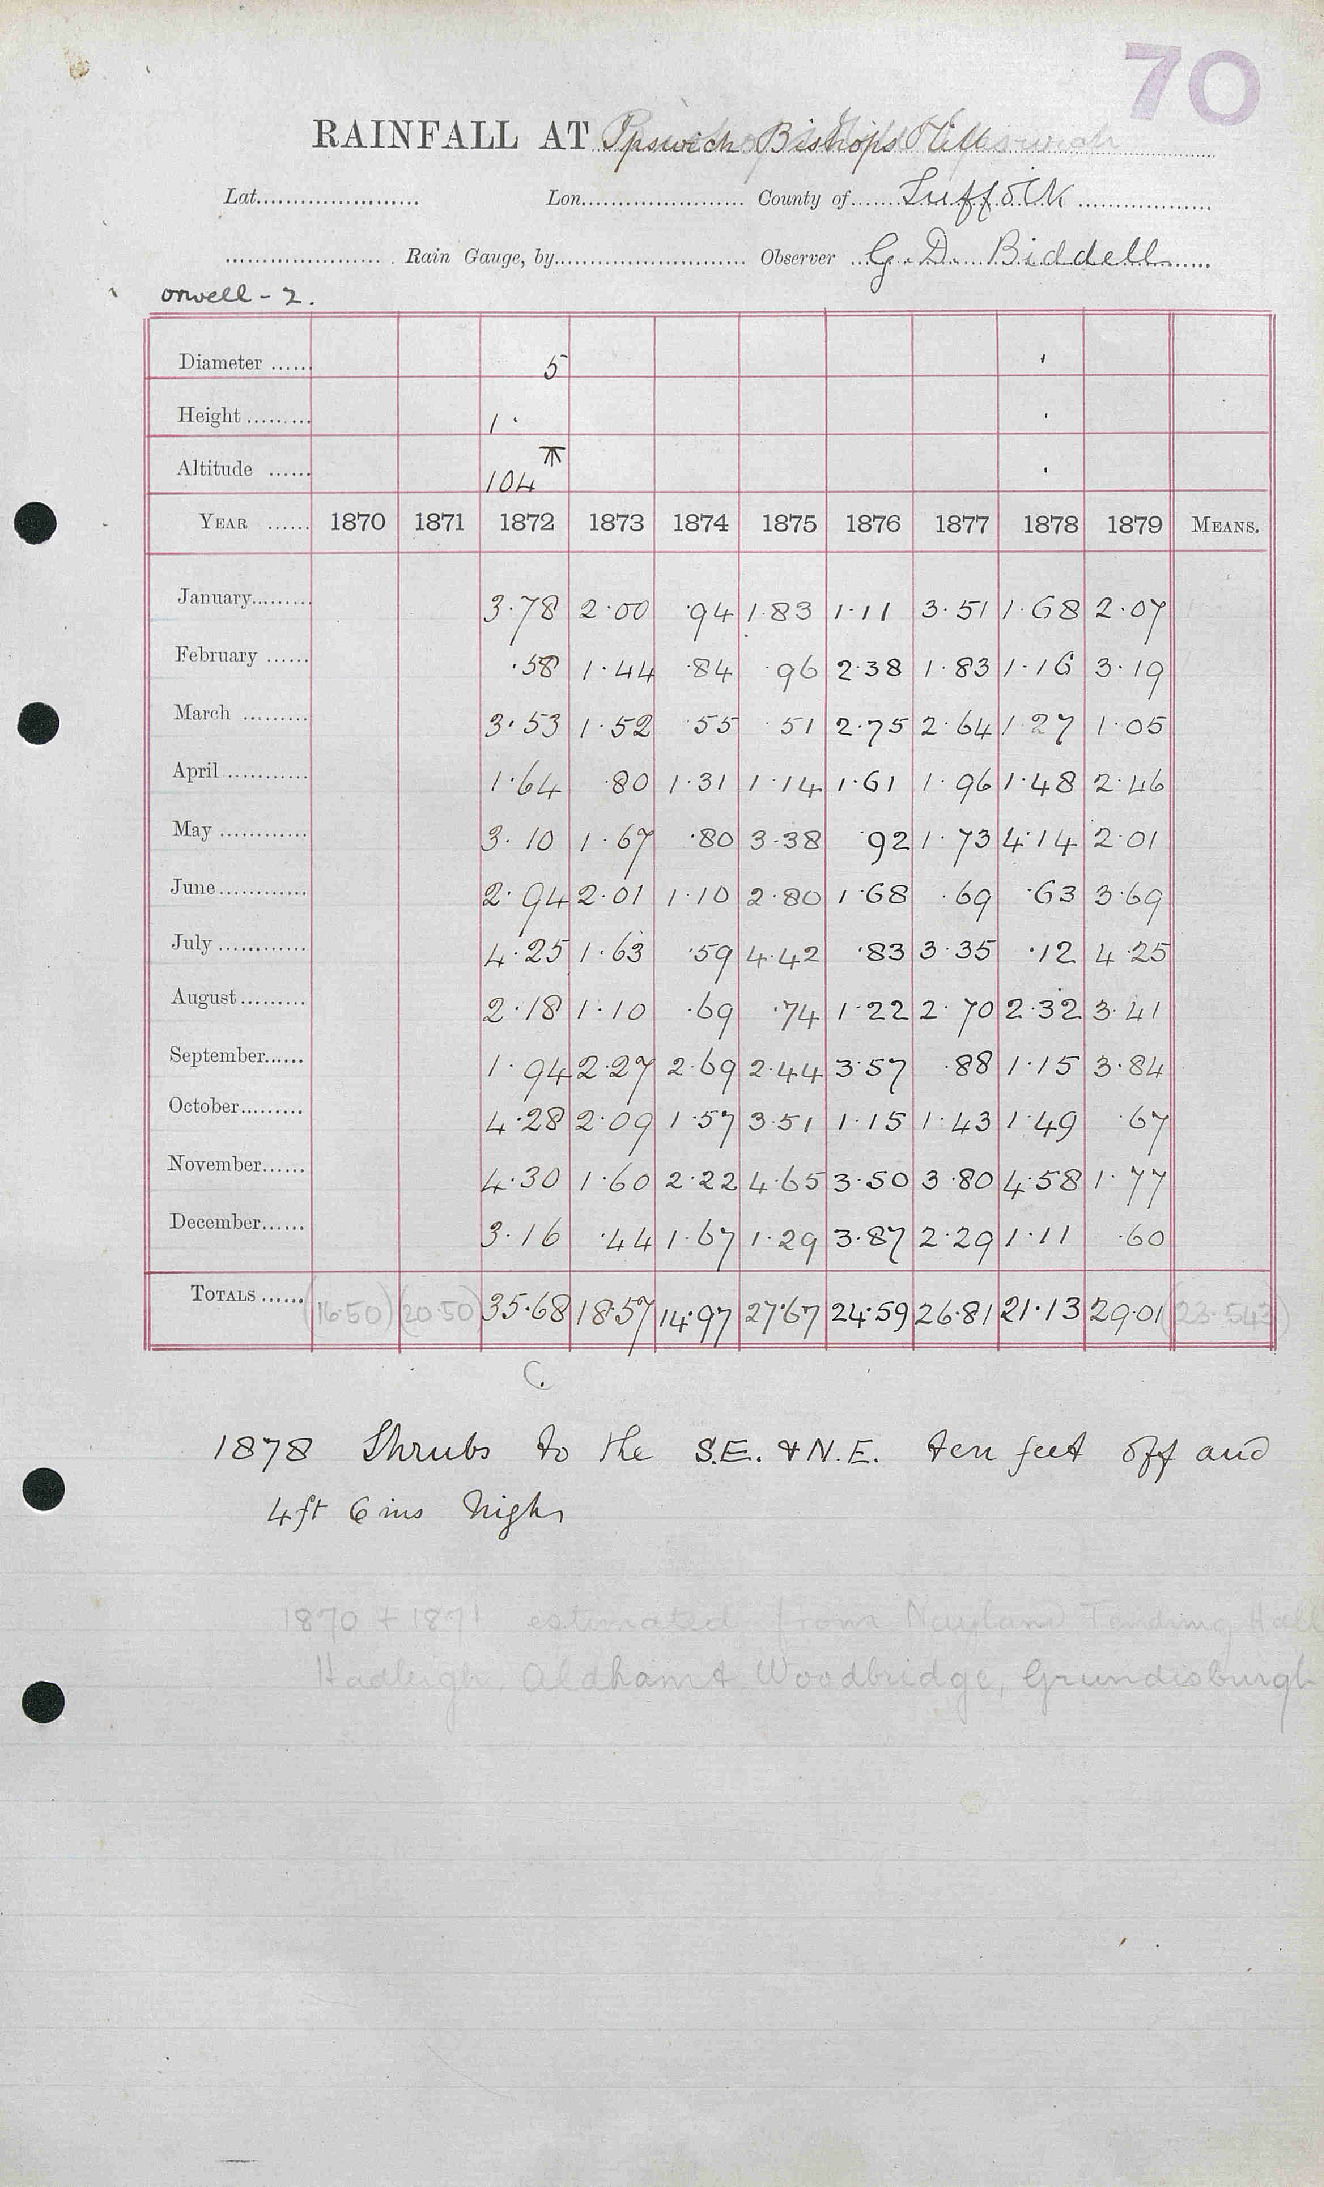 70
RAINFALL AT Ipswich Bishops Hill
Lat. Lon. County of Suffolk
Rain Gauge, by Observer G. D. Biddell
Orwell - 2.
Diameter ...... 5
Height ......... 1·
Altitude ...... 104
YEAR ...... 1870 1871 1872 1873 1874 1875 1876 1877 1878 1879 MEANS.
January......... 3·78 2·00 ·94 1·83 1·11 3·51 1·68 2·07
February ...... ·58 1·44 ·84 ·96 2·38 1·83 1·16 3·19
March ......... 3·53 1·52 ·55 ·51 2·75 2·64 1·27 1·05
April ............ 1·64 ·80 1·31 1·14 1·61 1·96 1·48 2·46
May ............ 3·10 1·67 ·80 3·38 ·92 1·73 4·14 2·01
June............ 2·94 2·01 1·10 2·80 1·68 ·69 ·63 3·69
July ............ 4·25 1·63 ·59 4·42 ·83 3·35 ·12 4·25
August ......... 2·18 1·10 ·69 ·74 1·22 2·70 2·32 3·41
September...... 1·94 2·27 2·69 2·44 3·57 ·88 1·15 3·84
October......... 4·28 2·09 1·57 3·51 1·15 1·43 1·49 ·67
November...... 4·30 1·60 2·22 4·65 3·50 3·80 4·58 1·77
December...... 3·16 ·44 1·67 1·29 3·87 2·29 1·11 ·60
TOTALS ...... (16·50) (20·50) 35·68 18·57 14·97 27·67 24·59 26·81 21·13 29·01 (23·543)
C.
1878 Shrubs to the S.E. & N.E. ten feet off and
4 ft 6 ins high
1870 + 1871 estimated from Nayland Tending Hall
Hadleigh Aldham & Woodbridge, Grundisburgh